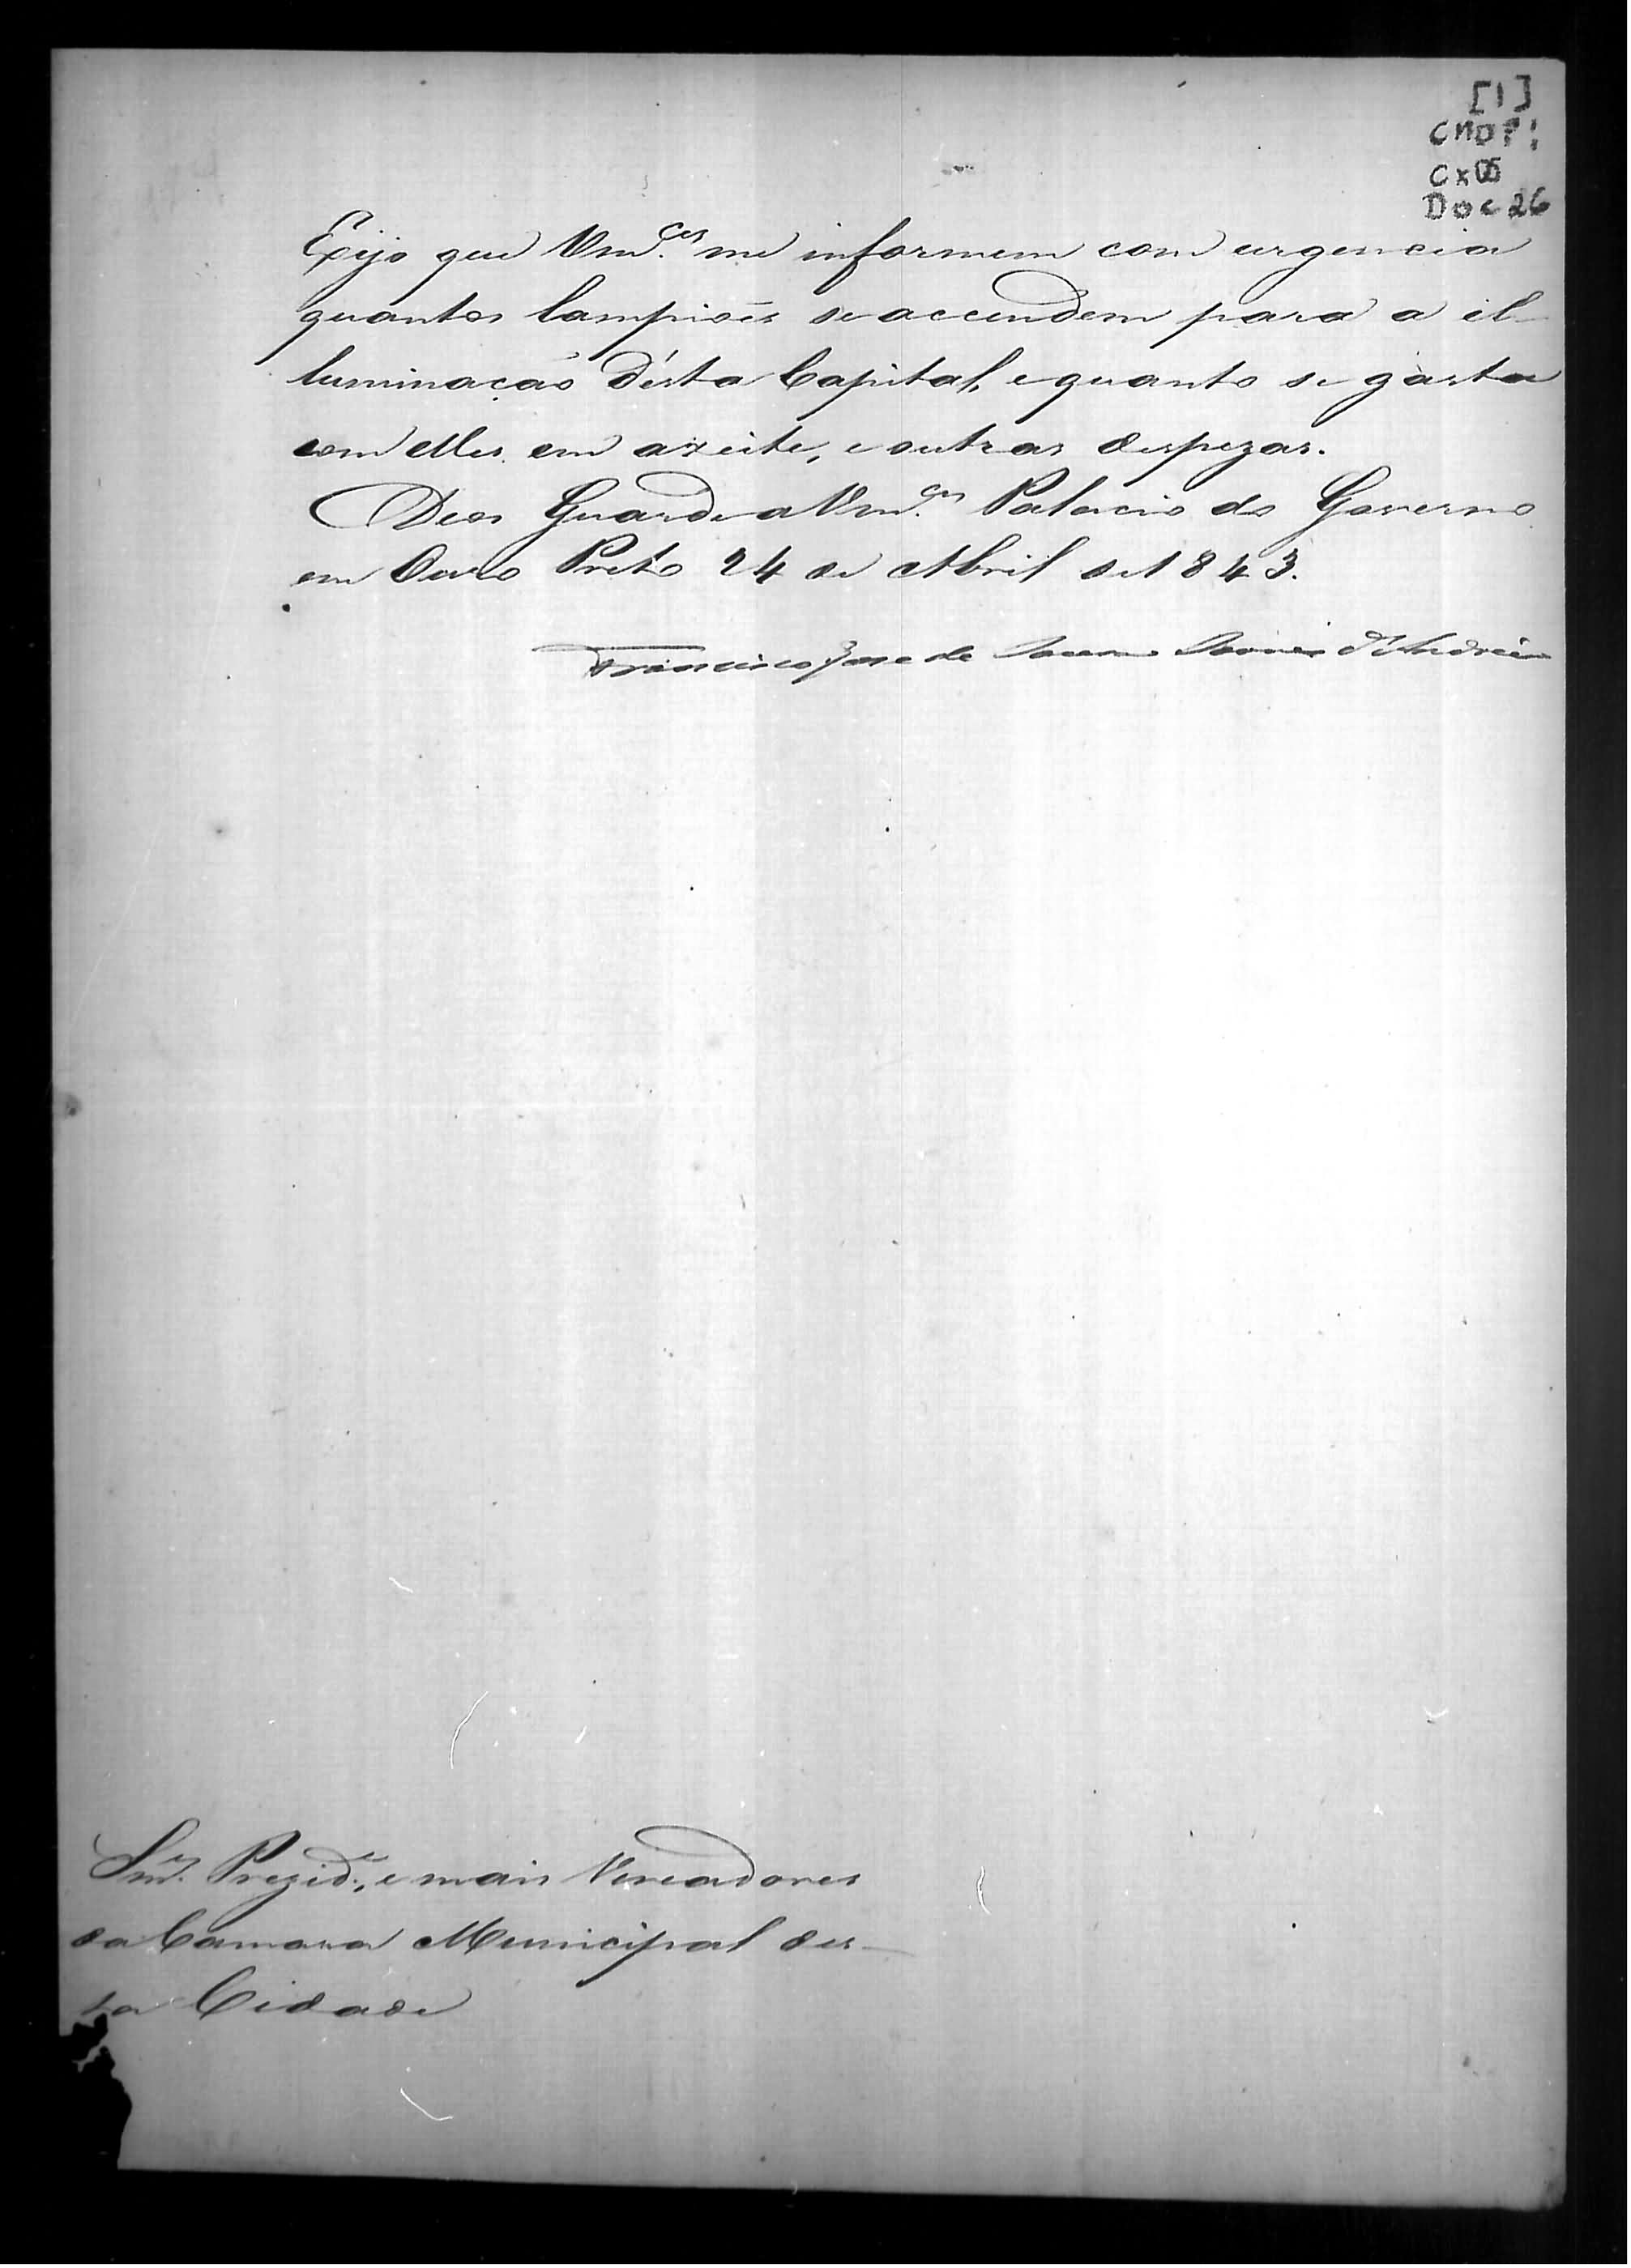 [1]
CMOP:
Cx 05
Doc 26
Exijo que Vm.ces me informem com urgencia
quantos lampiões se accendem para a il-
luminação d'ésta Capital, e quanto se gasta
com elles em azeite, e outras despezas.
Deos Guarde a Vm.ces Palacio do Governo
em Ouro Preto 24 de Abril de 1843.
Francisco Jose de Souza Soares d'Andréa
Snr.es Prezid.e, e mais Vereadores
da Camara Municipal des-
ta Cidade